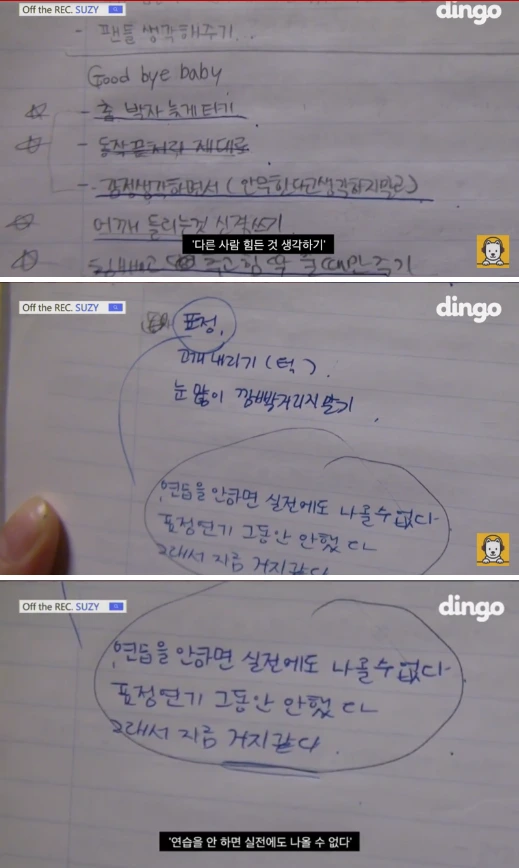 Off the REC. SUZY
dingo
- 팬들 생각해주기..
Good bye baby
- 춤 박자 늦게타기
- 동작끝처리 제대로
- 감정생각하면서 (안무한다고생각하지말고)
어깨 들리는것 신경쓰기
'다른 사람 힘든 것 생각하기'
힘빼고 죽고힘 딱 줄때만주기
Off the REC. SUZY
dingo
표정.
어깨내리기 (턱)
눈 많이 깜빡거리지말기
연습을 안하면 실전에도 나올수없다
표정연기 그동안 안했다
그래서 지금 거지같다
Off the REC. SUZY
dingo
연습을 안하면 실전에도 나올수없다
표정연기 그동안 안했다
그래서 지금 거지같다.
'연습을 안 하면 실전에도 나올 수 없다'